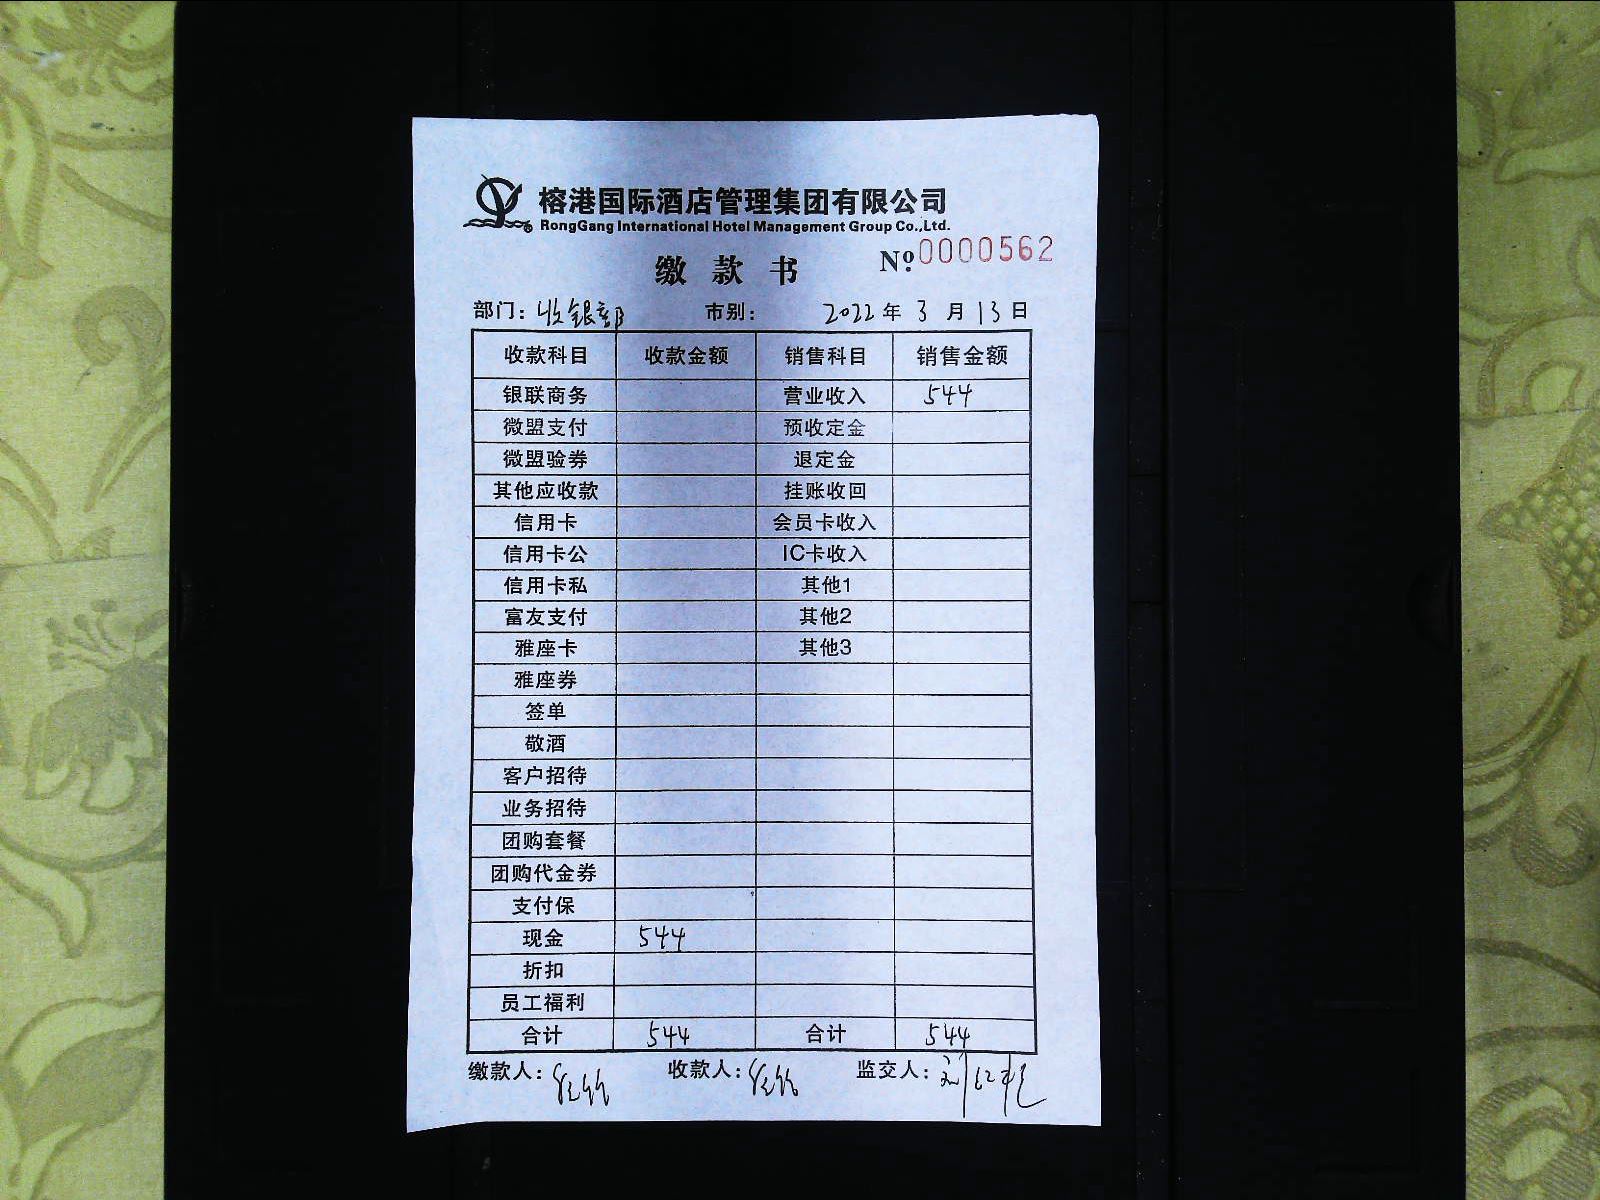 榕港国际酒店管理集团有限公司
RongGang International Hotel Management Group Co.,Ltd.
缴款书 Nº:0000562
部门：收银部 市别： 2022年3月13日
收款科目 收款金额 销售科目 销售金额
银联商务 营业收入 544
微盟支付 预收定金
微盟验券 退定金
其他应收款 挂账收回
信用卡 会员卡收入
信用卡公 IC卡收入
信用卡私 其他1
富友支付 其他2
雅座卡 其他3
雅座券
签单
敬酒
客户招待
业务招待
团购套餐
团购代金券
支付保
现金 544
折扣
员工福利
合计 544 合计 544
缴款人： 收款人： 监交人：